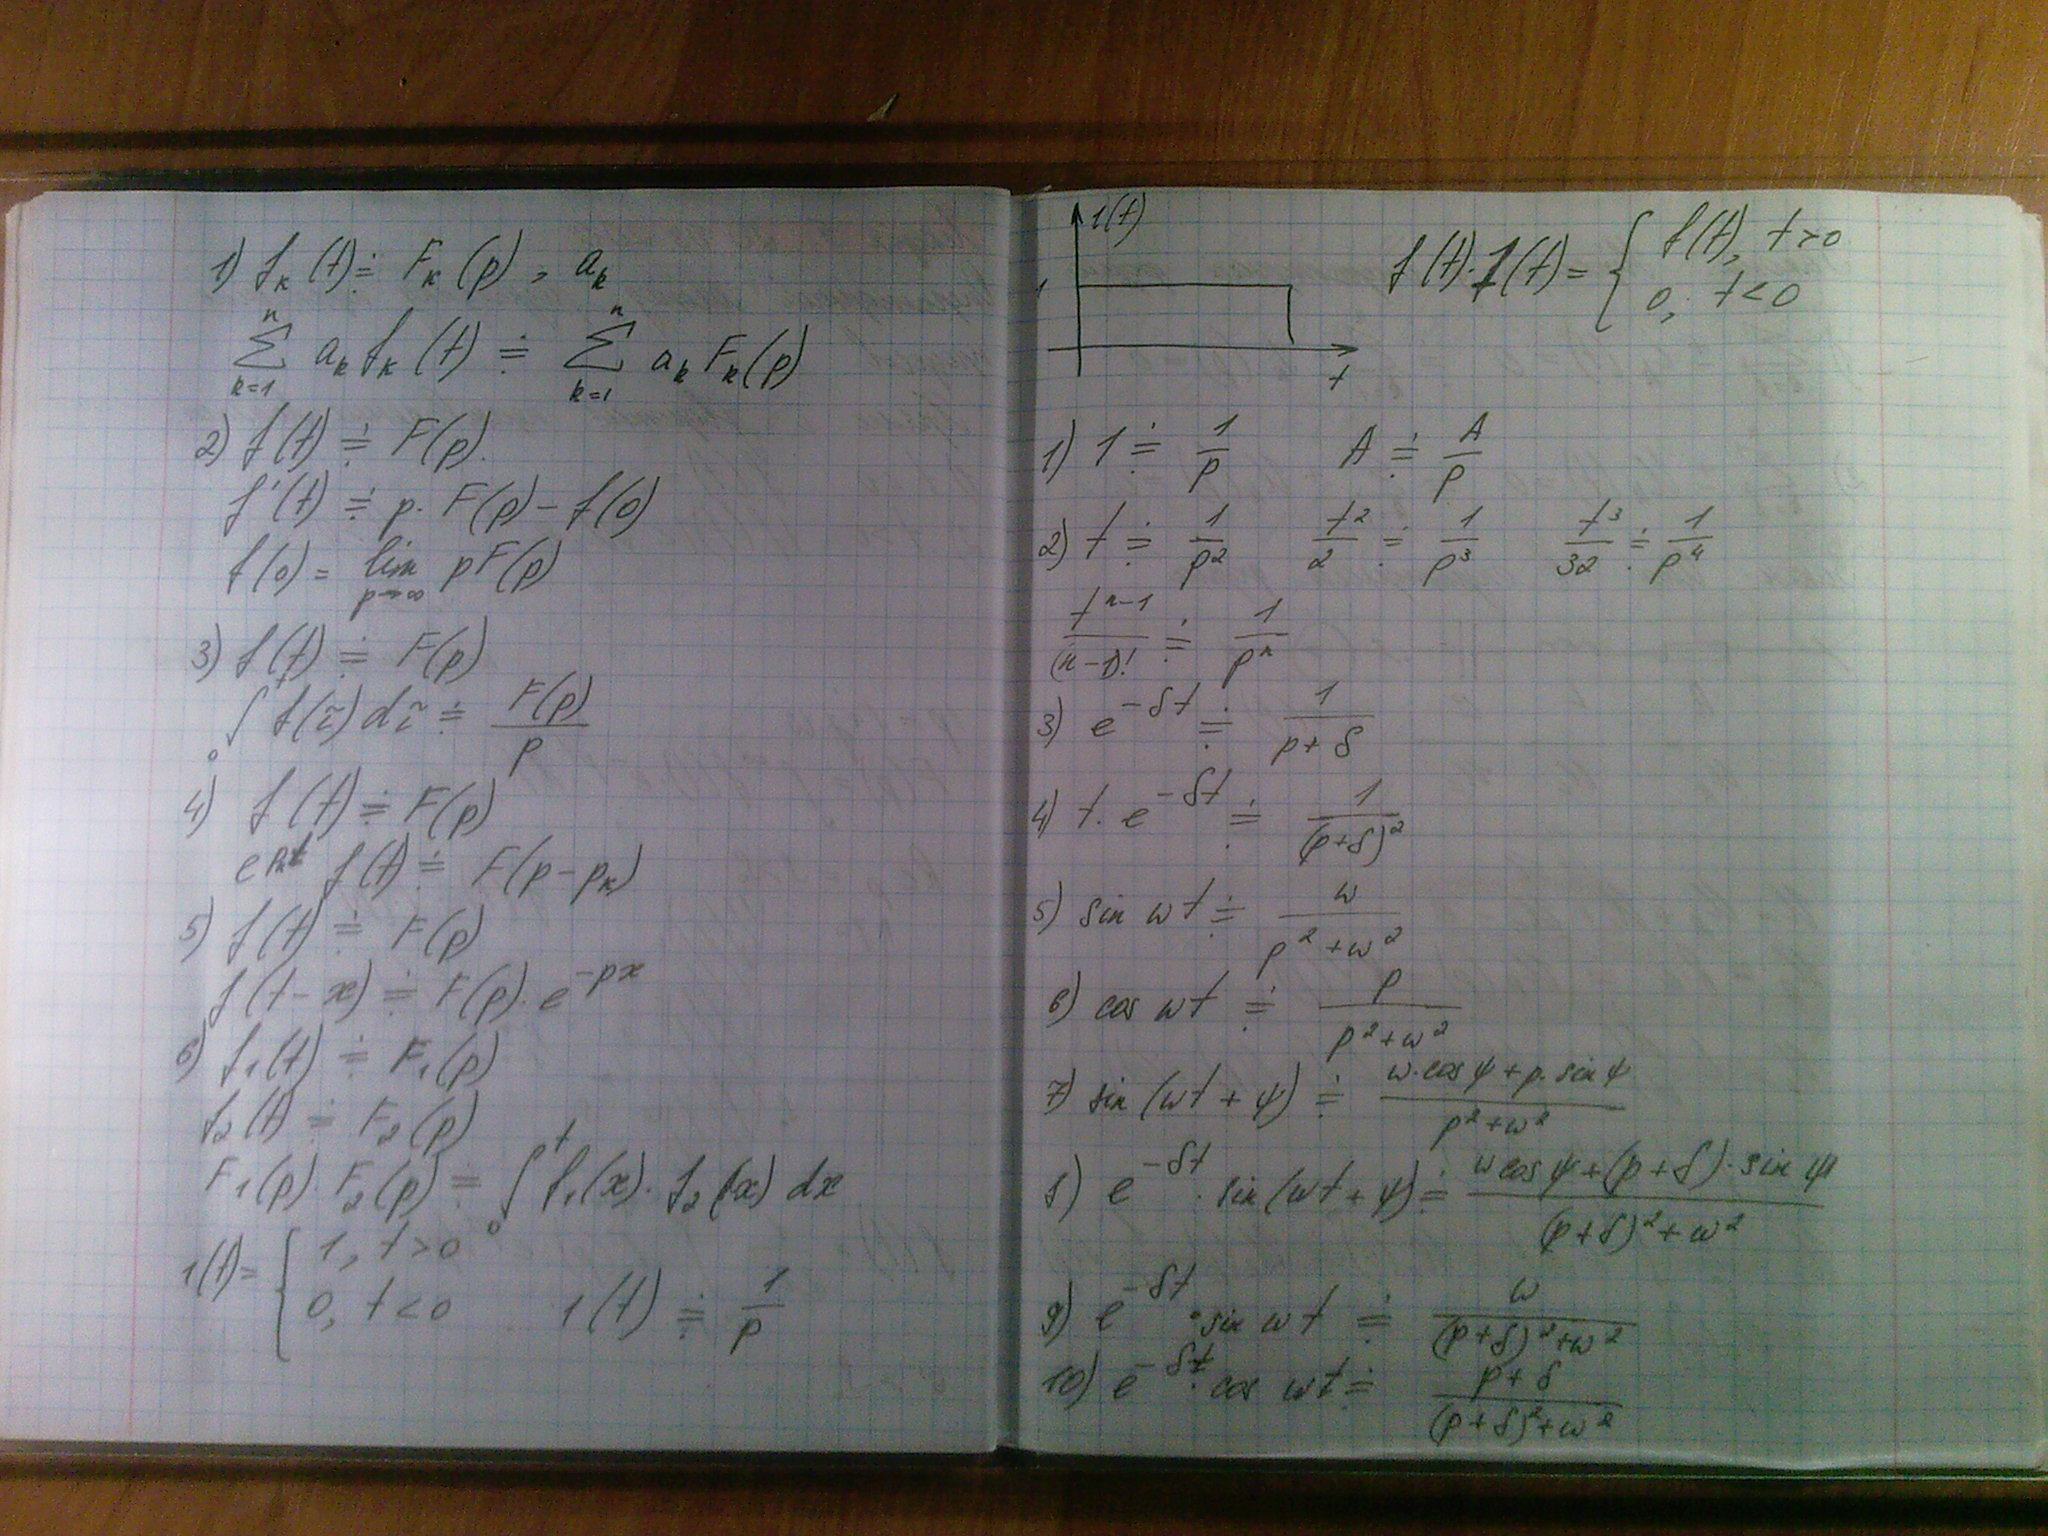 1) fₖ(t) ≓ Fₖ(p), aₖ
∑ₖ₌₁ⁿ aₖ fₖ(t) ≓ ∑ₖ₌₁ⁿ aₖ Fₖ(p)
2) f(t) ≓ F(p).
f'(t) ≓ p · F(p) − f(0)
f(0) = lim p→∞ pF(p)
3) f(t) ≓ F(p)
∫₀ᵗ f(τ) dτ ≓ F(p)/p
4) f(t) ≓ F(p)
e^{pₖt} f(t) ≓ F(p − pₖ)
5) f(t) ≓ F(p)
f(t − x) ≓ F(p) · e^{−px}
6) f₁(t) ≓ F₁(p)
f₂(t) ≓ F₂(p)
F₁(p) · F₂(p) ≓ ∫₀ᵗ f₁(x) · f₂(x) dx
1(t) = { 1, t > 0
0, t < 0   1(t) ≓ 1/p
1(t)
1
t
f(t) · 1(t) = { f(t), t > 0
0, t < 0
1) 1 ≓ 1/p   A ≓ A/p
2) t ≓ 1/p²   t²/2 ≓ 1/p³   t³/32 ≓ 1/p⁴
tⁿ⁻¹/(n − 1)! ≓ 1/pⁿ
3) e^{−δt} ≓ 1/(p + δ)
4) t · e^{−δt} ≓ 1/(p + δ)²
5) sin ωt ≓ ω/(p² + ω²)
6) cos ωt ≓ p/(p² + ω²)
7) sin (ωt + ψ) ≓ (ω · cos ψ + p · sin ψ)/(p² + ω²)
8) e^{−δt} · sin (ωt + ψ) ≓ (ω cos ψ + (p + δ) · sin ψ)/((p + δ)² + ω²)
9) e^{−δt} · sin ωt ≓ ω/((p + δ)² + ω²)
10) e^{−δt} · cos ωt ≓ (p + δ)/((p + δ)² + ω²)